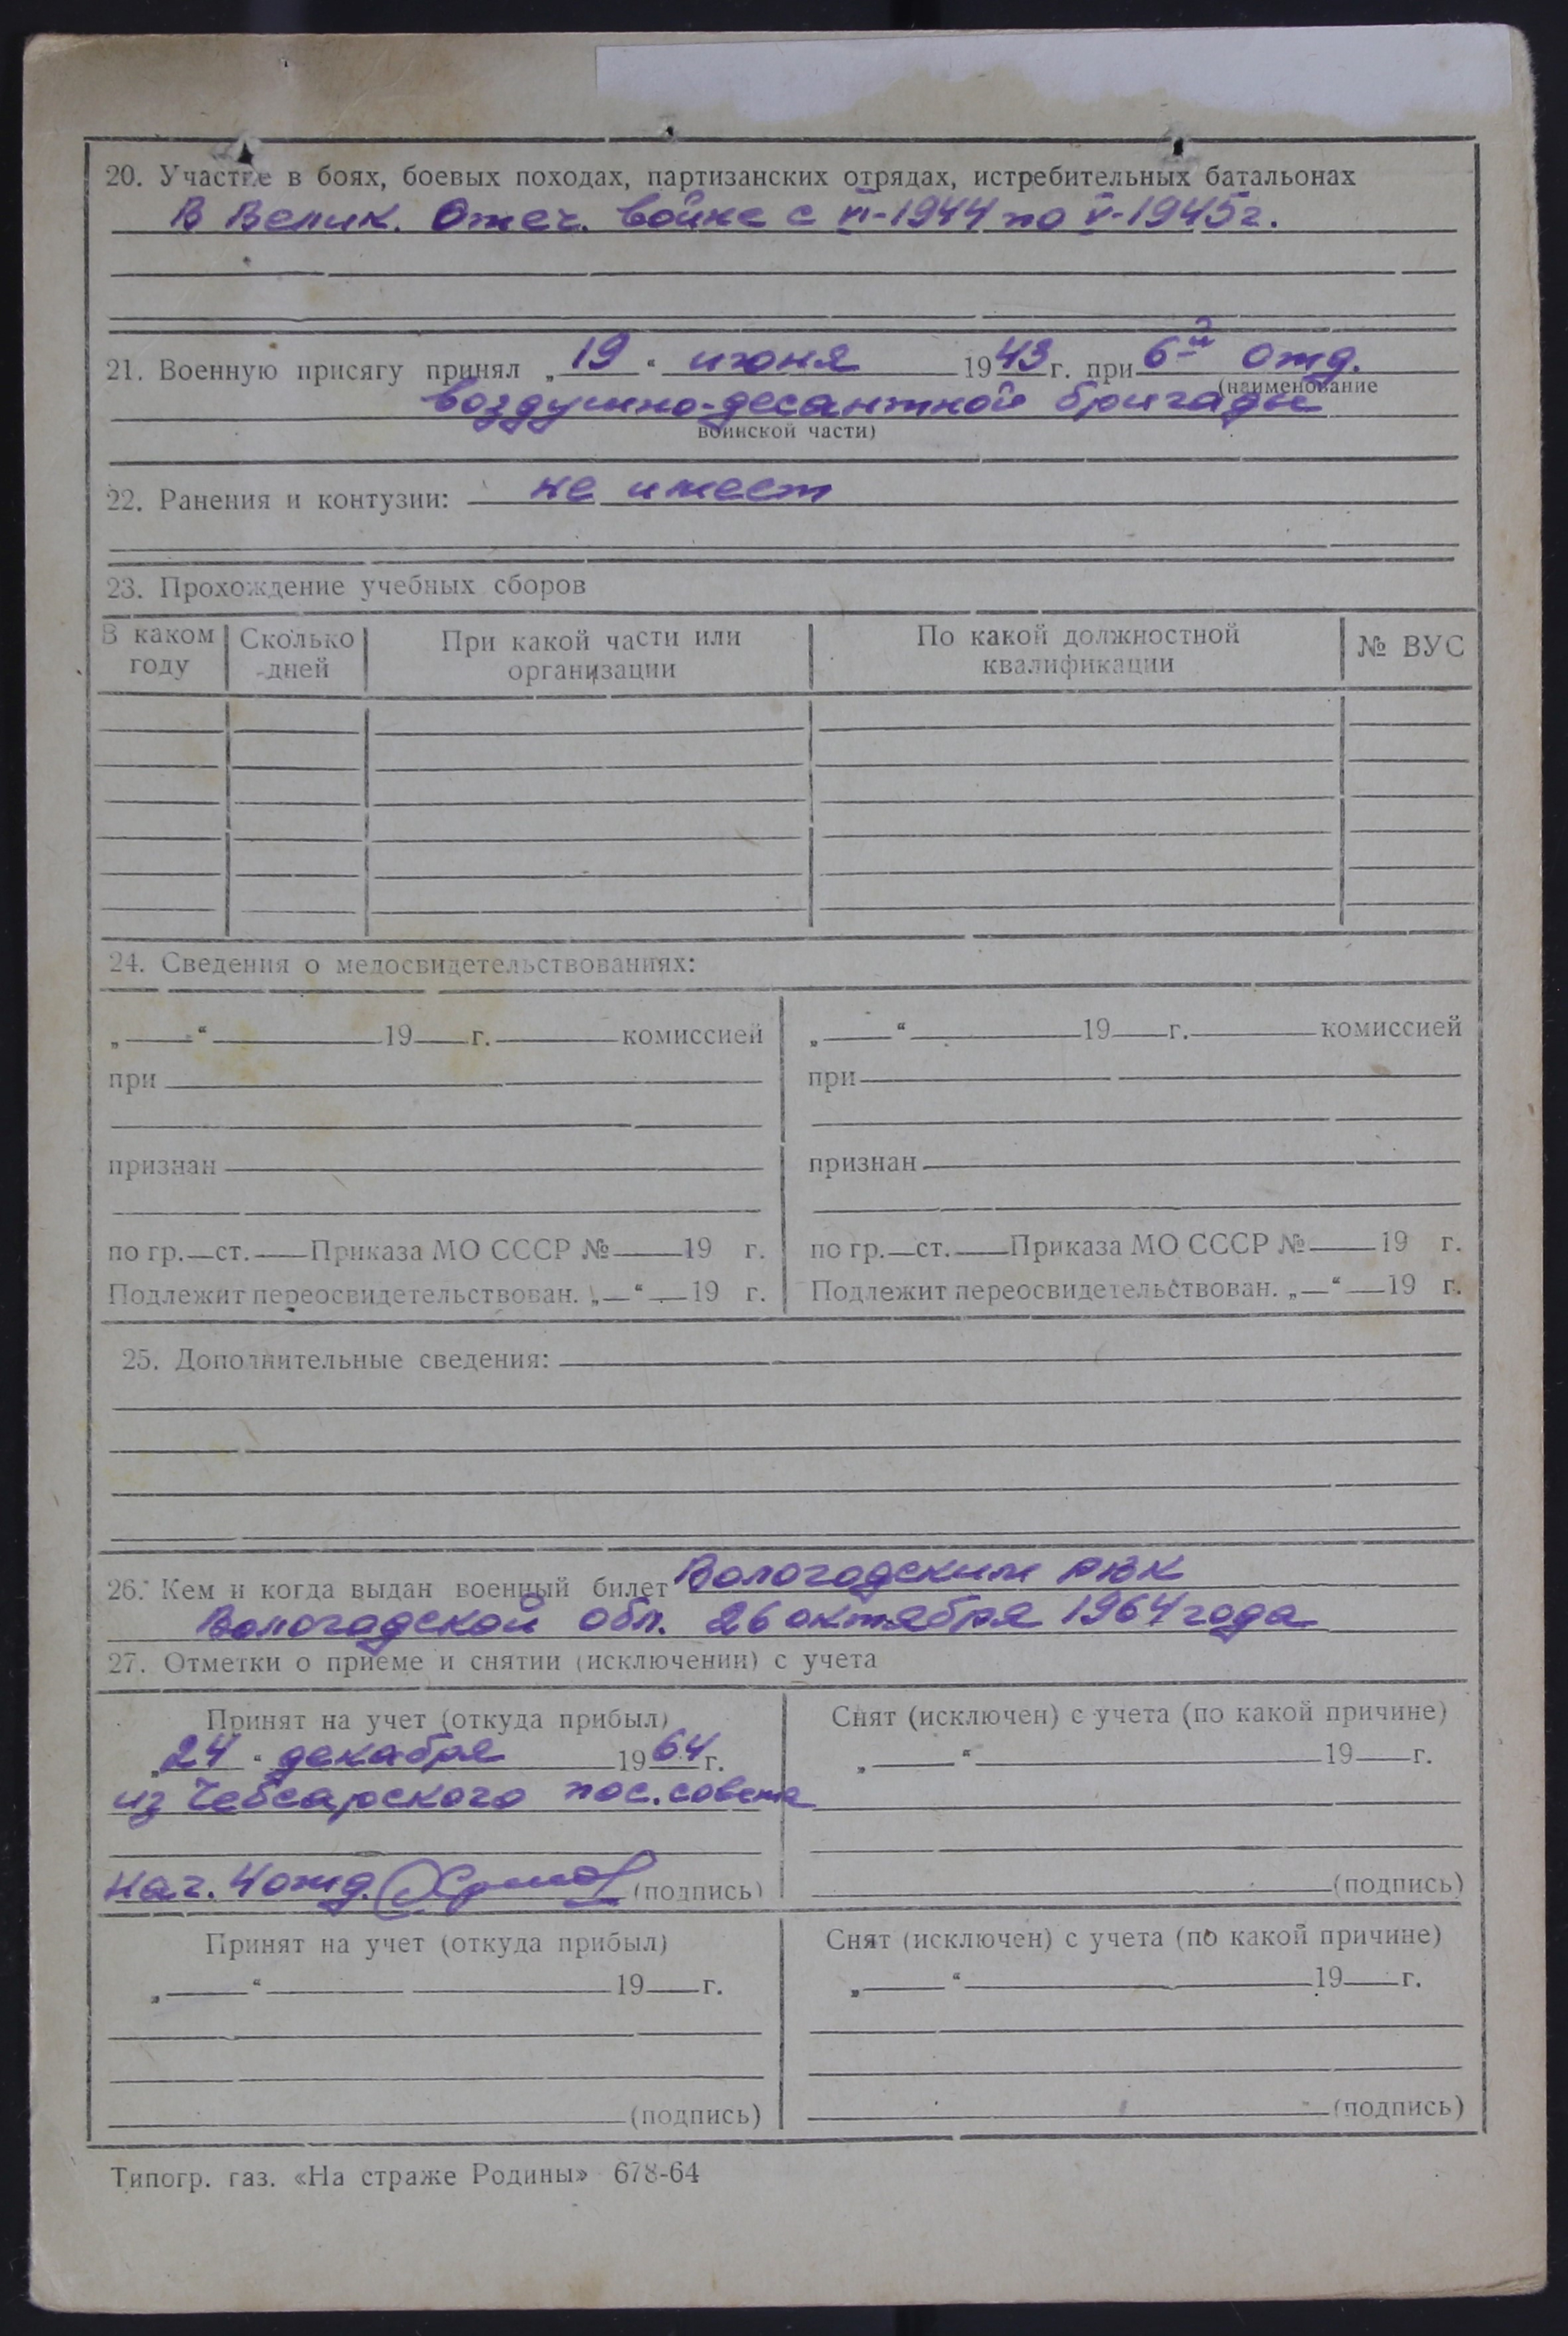 20. Участие в боях, боевых походах, партизанских отрядах, истребительных батальонах
В Велик. Отеч. войне с VI-1944 по V-1945г.
21. Военную присягу принял „19“ июня 1943г. при 6й Отд.
(наименование
воздушно-десантной бригады
воинской части)
22. Ранения и контузии: не имеет
23. Прохождение учебных сборов
В каком году | Сколько дней | При какой части или организации | По какой должностной квалификации | № ВУС
24. Сведения о медосвидетельствованиях:
„ “ 19 г. комиссией | „ “ 19 г. комиссией
при | при
признан | признан
по гр. ст. Приказа МО СССР № 19 г. | по гр. ст. Приказа МО СССР № 19 г.
Подлежит переосвидетельствован. „ “ 19 г. | Подлежит переосвидетельствован. „ “ 19 г.
25. Дополнительные сведения:
26. Кем и когда выдан военный билет Вологодским РВК
Вологодской обл. 26 октября 1964 года
27. Отметки о приеме и снятии (исключении) с учета
Принят на учет (откуда прибыл) | Снят (исключен) с учета (по какой причине)
„24“ декабря 1964 г. | „ “ 19 г.
из Чебсарского пос. совета
нач. 4 отд. (подпись) | (подпись)
Принят на учет (откуда прибыл) | Снят (исключен) с учета (по какой причине)
„ “ 19 г. | „ “ 19 г.
(подпись) | (подпись)
Типогр. газ. «На страже Родины» 678-64